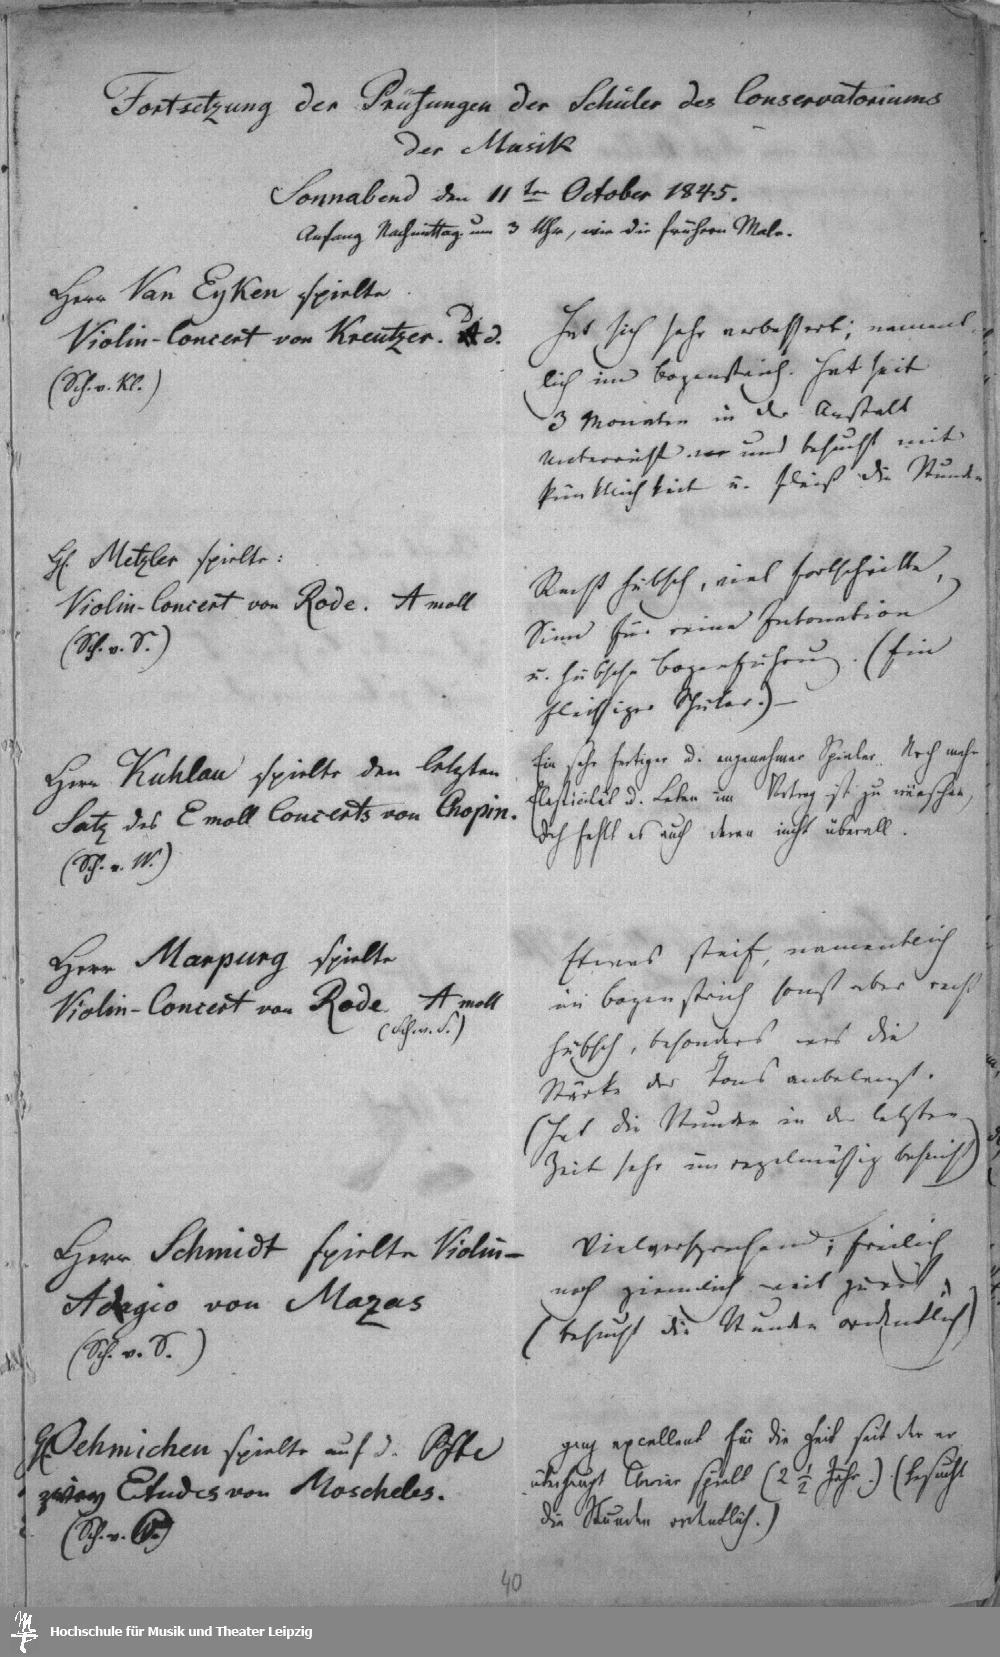 Fortsetzung der Prüfungen der Schüler des Conservatoriums
der Musik
Sonnabend den 11ten October 1845.
Anfang Nachmittag um 3 Uhr, wie die frühern Male.
Herr Van Eyken spielte
Violin-Concert von Kreutzer. D d.
(Sch. v. Kl.)
Hat sich sehr verbessert; nament-
lich im Bogenstrich. Hat seit
3 Monaten in der Anstalt
Unterricht und besucht mit
Pünktlichkeit u. Fleiß die Stunden
H. Metzler spielte:
Violin-Concert von Rode. A moll
(Sch. v. S.)
Recht hübsch, viel Fortschritte,
Sinn für reine Intonation
u. hübsche Bogenführung. (Ein
fleißiger Schüler.) —
Herr Kuhlau spielte den letzten
Satz des E moll Concerts von Chopin.
(Sch. v. W.)
Ein sehr fertiger u. angenehmer Spieler. Noch mehr
Elasticität u. Leben im Vortrag ist zu wünschen,
doch fehlt es auch daran nicht überall.
Herr Marpurg spielte
Violin-Concert von Rode A moll
(Sch. v. S.)
Etwas steif, namentlich
im Bogenstrich sonst aber recht
hübsch, besonders was die
Stärke des Tons anbelangt.
(Hat die Stunden in der letzten
Zeit sehr unregelmäßig besucht)
Herr Schmidt spielte Violin-
Adagio von Mazas
(Sch. v. S.)
Vielversprechend; freilich
noch ziemlich weit zurück
(besucht die Stunden ordentlich)
H. Oehmichen spielte auf d. Pfte
zwey Etudes von Moscheles.
(Sch. v. W.)
ganz excellent für die Zeit seit der er
überhaupt Clavier spielt (2 1/2 Jahr.) (besucht
die Stunden ordentlich.)
40
Hochschule für Musik und Theater Leipzig